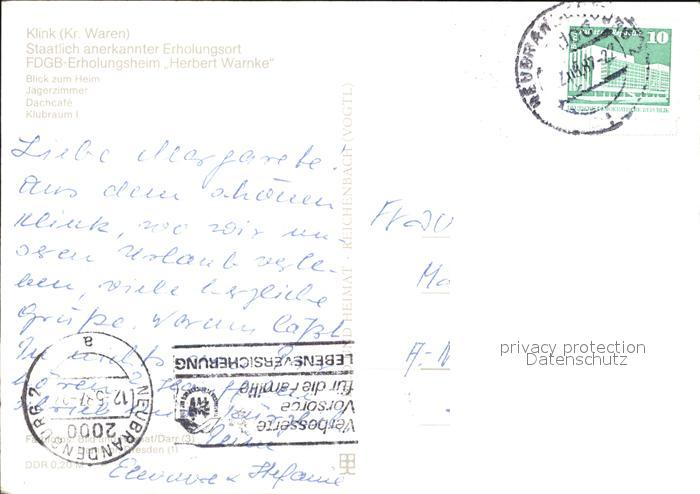 Klink (Kr. Waren)
Staatlich anerkannter Erholungsort
FDGB-Erholungsheim „Herbert Warnke"
Blick zum Heim
Jägerzimmer
Dachcafé
Klubraum I
Liebe Margarete!
Aus dem schönen
Klink, wo wir un-
seren Urlaub verle-
ben, viele herzliche
Grüße. Warum läßt
Du nichts
hören?
Eleonore & Stefanie
DDR 0,20 M
REICHENBACH (VOGTL)
Frau
Ma
10
DEUTSCHE DEMOKRATISCHE REPUBLIK
NEUBRANDENBURG 2
2000
a
Verbesserte
Vorsorce
für die Familie
LEBENSVERSICHERUNG
privacy protection
Datenschutz